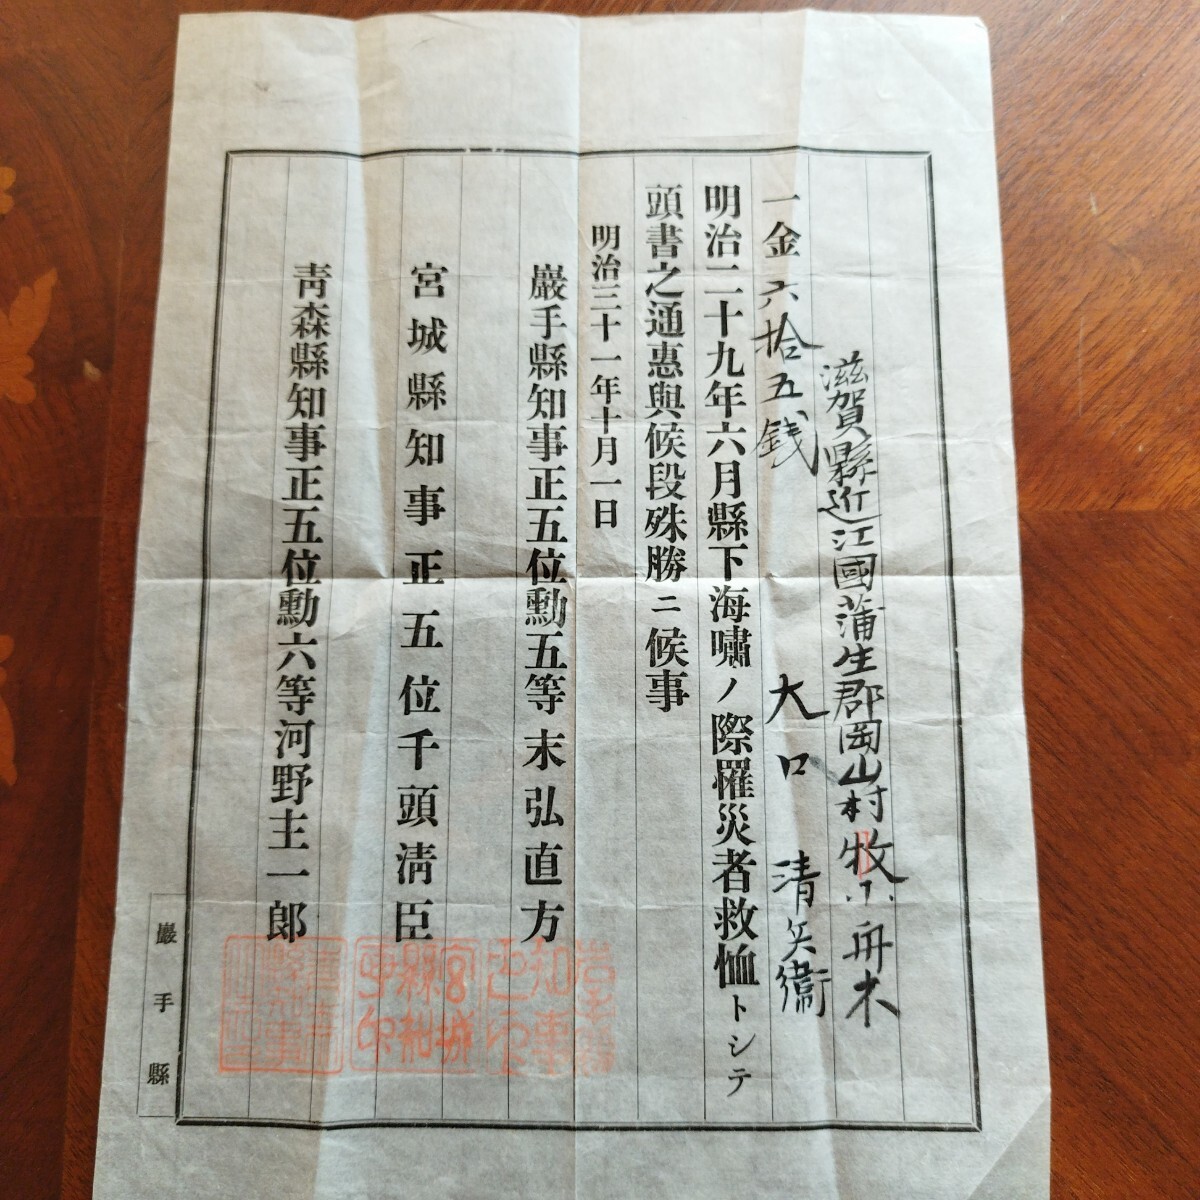 滋賀縣近江國蒲生郡岡山村牧小舟木
一金六拾五銭
大口清兵衞
明治二十九年六月縣下海嘯ノ際罹災者救恤トシテ
頭書之通惠與候段殊勝ニ候事
明治三十一年十月一日
巖手縣知事正五位勳五等末弘直方
宮城縣知事正五位千頭淸臣
靑森縣知事正五位勳六等河野主一郎
宮城縣知事印
巖手縣